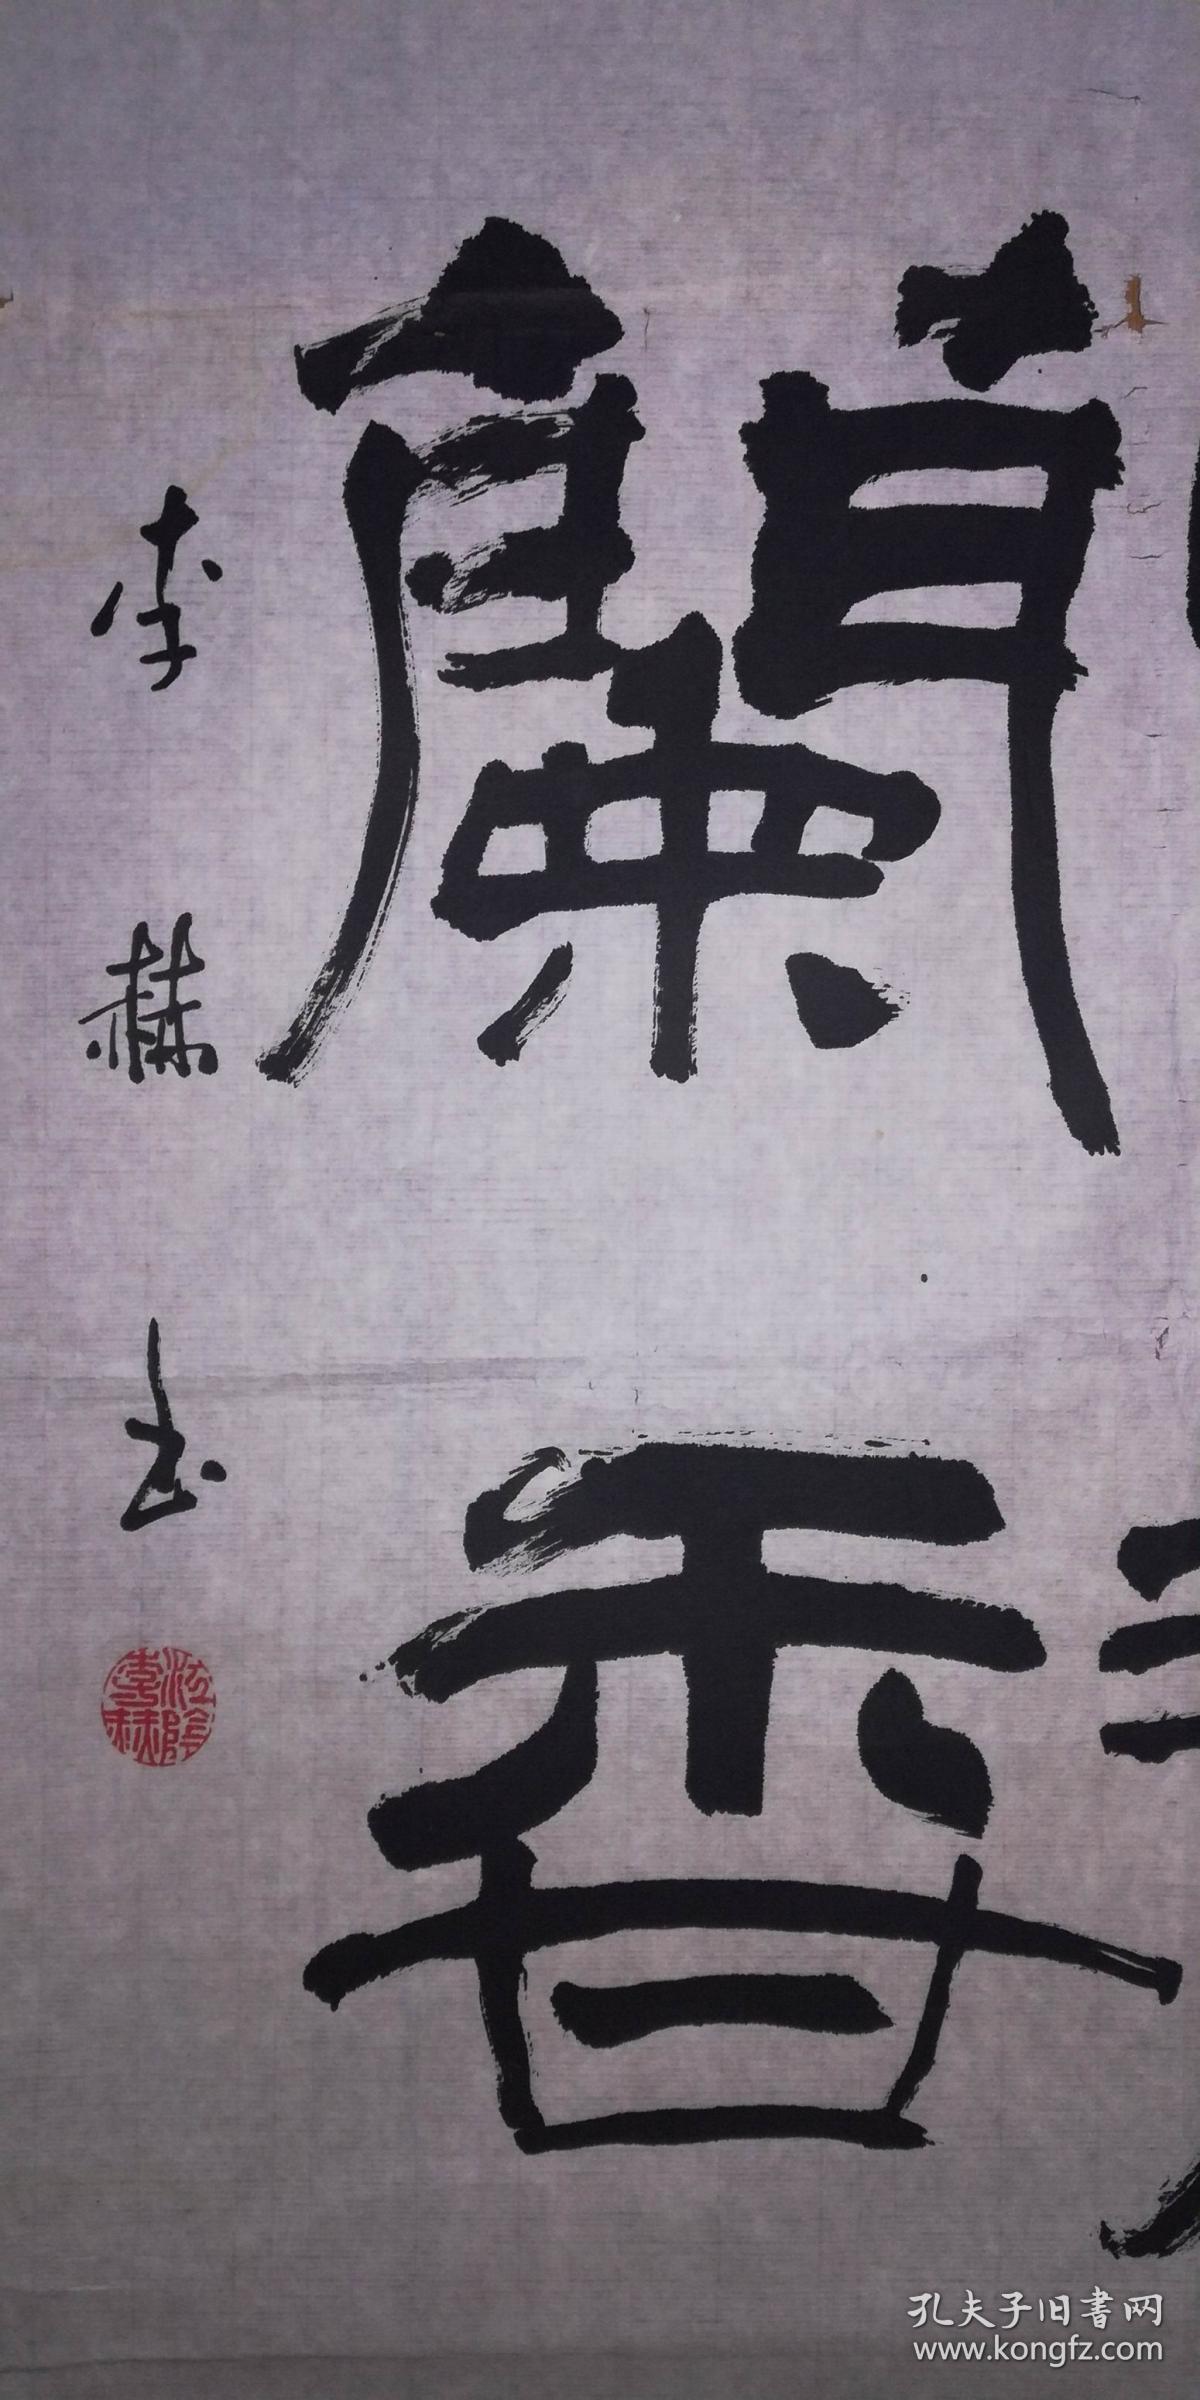 蘭香
李赫书
李赫
孔夫子旧書网
www.kongfz.com